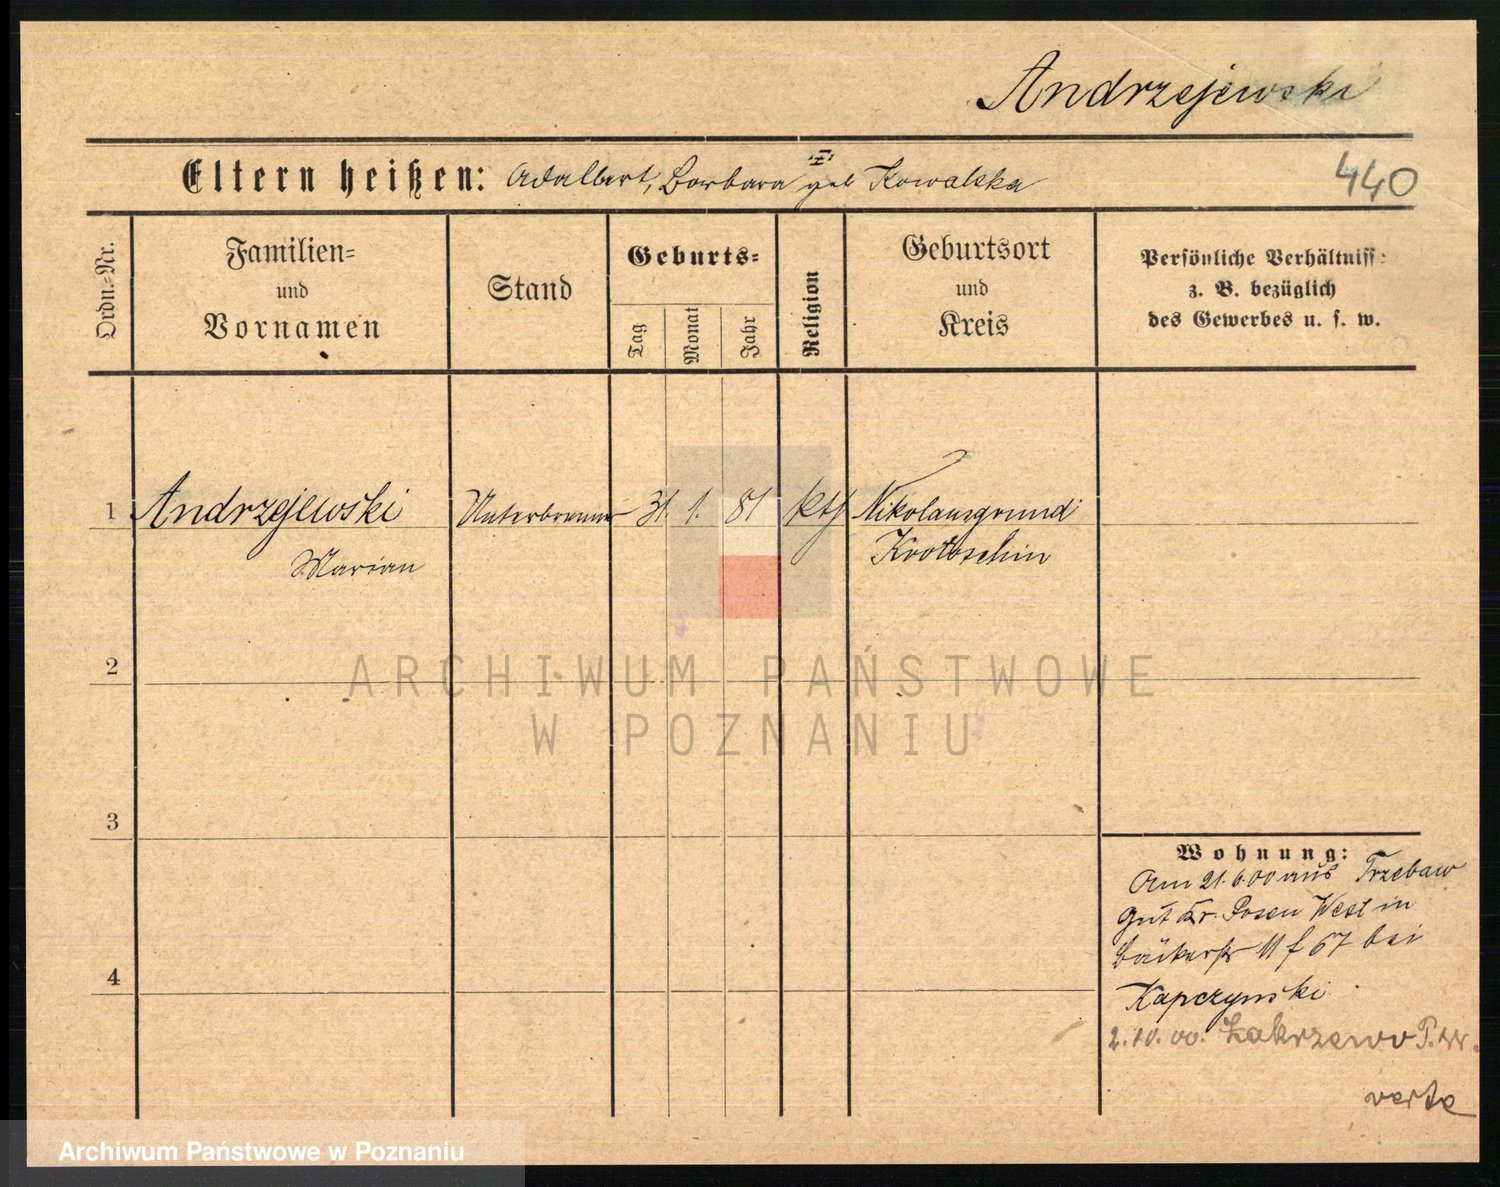 Andrzejewski
440
Eltern heißen: Adalbert, Barbara geb Kowalska
Ordn.-Nr.
Familien-
und
Vornamen
Stand
Geburts-
Tag
Monat
Jahr
Religion
Geburtsort
und
Kreis
Persönliche Verhältnisse
z. B. bezüglich
des Gewerbes u. s. w.
1 Andrzejewski Unterbrenner 31. 1. 81 kth Nikolausgrund
Marian Krotoschin
2
ARCHIWUM PAŃSTWOWE
W POZNANIU
3
Wohnung:
Am 21.6.00 aus Trzebaw
Gut Kr. Posen West in
Bäckerstr 11 f 67 bei
Kapczynski
2.10.00. Zakrzewo P.W.
4
verte
Archiwum Państwowe w Poznaniu